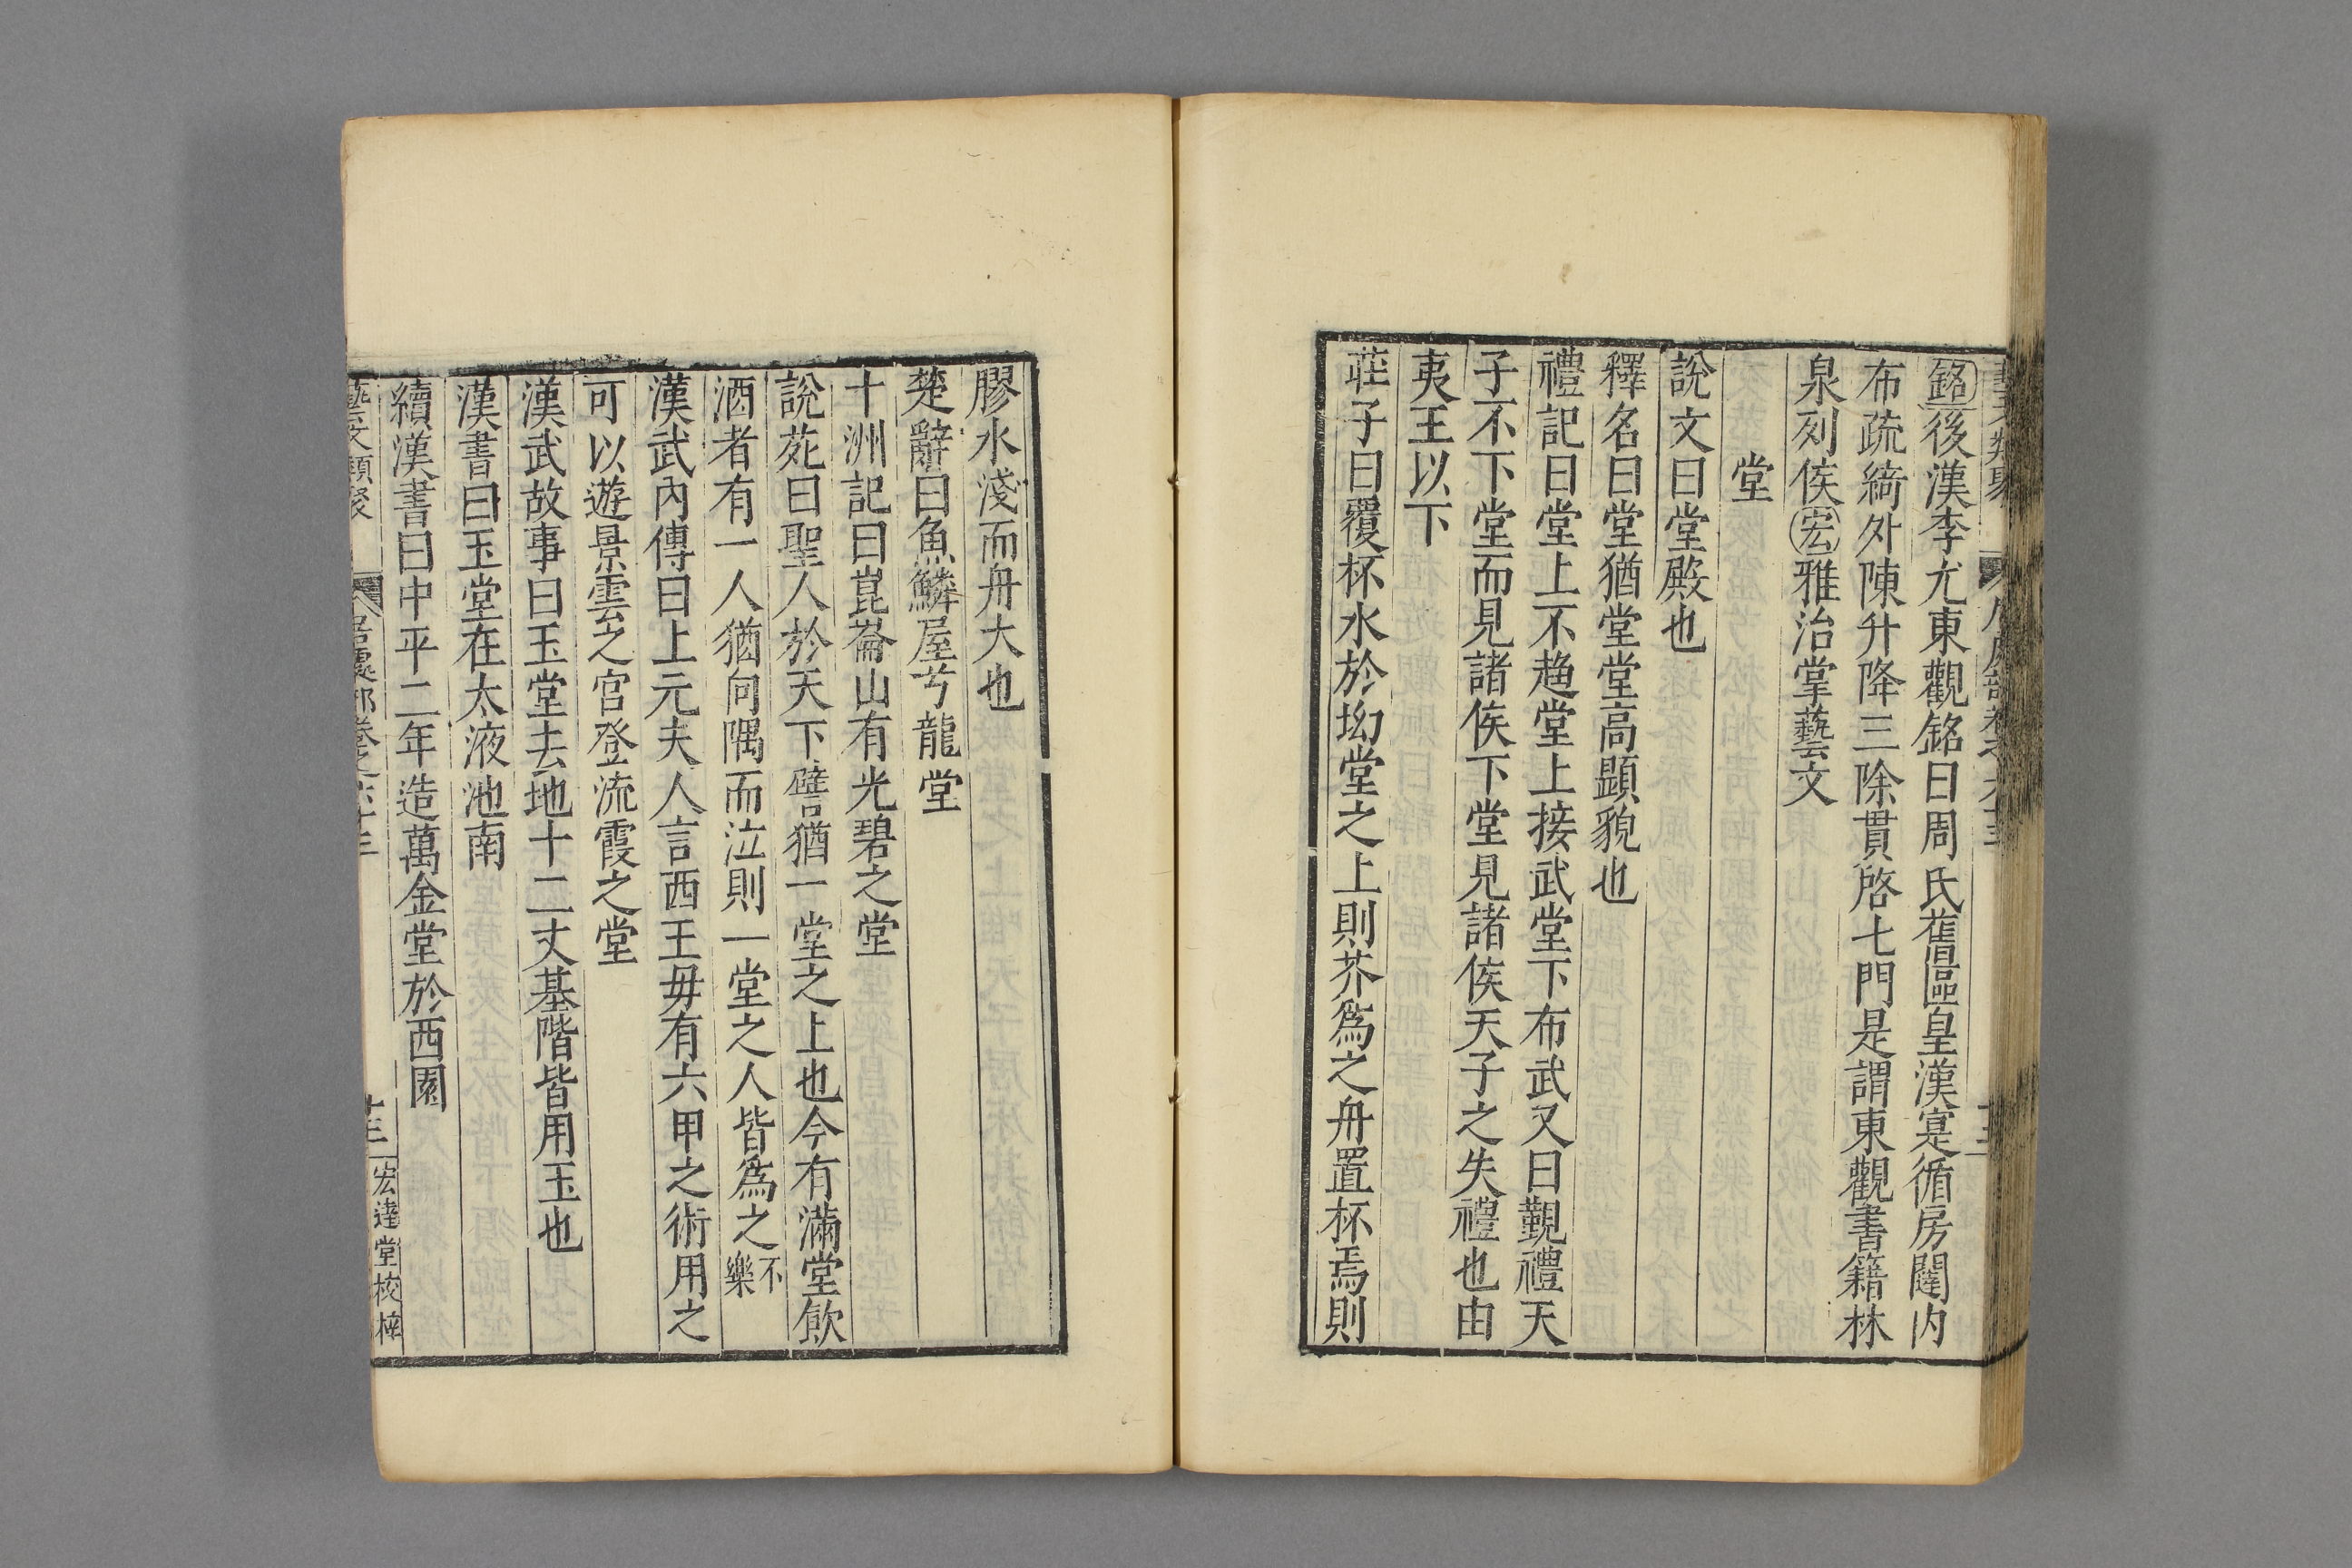 銘後漢李尤東觀銘曰周氏舊區皇漢寔循房闥内
布疏綺外陳升降三除貫啓七門是謂東觀書籍林
泉列侯宏雅治掌藝文
堂
說文曰堂殿也
釋名曰堂猶堂堂高顯貌也
禮記曰堂上不趨堂上接武堂下布武又曰覲禮天
子不下堂而見諸侯下堂見諸侯天子之失禮也由
夷王以下
莊子曰覆杯水於坳堂之上則芥爲之舟置杯焉則
膠水淺而舟大也
楚辭曰魚鱗屋兮龍堂
十洲記曰崑崙山有光碧之堂
說苑曰聖人於天下譬猶一堂之上也今有滿堂飲
酒者有一人猶向隅而泣則一堂之人皆爲之不樂
漢武內傳曰上元夫人言西王毋有六甲之術用之
可以遊景雲之宮登流霞之堂
漢武故事曰玉堂去地十二丈基階皆用玉也
漢書曰玉堂在太液池南
續漢書曰中平二年造萬金堂於西園
藝文類聚 居處部卷之六十三 十三 宏達堂校梓